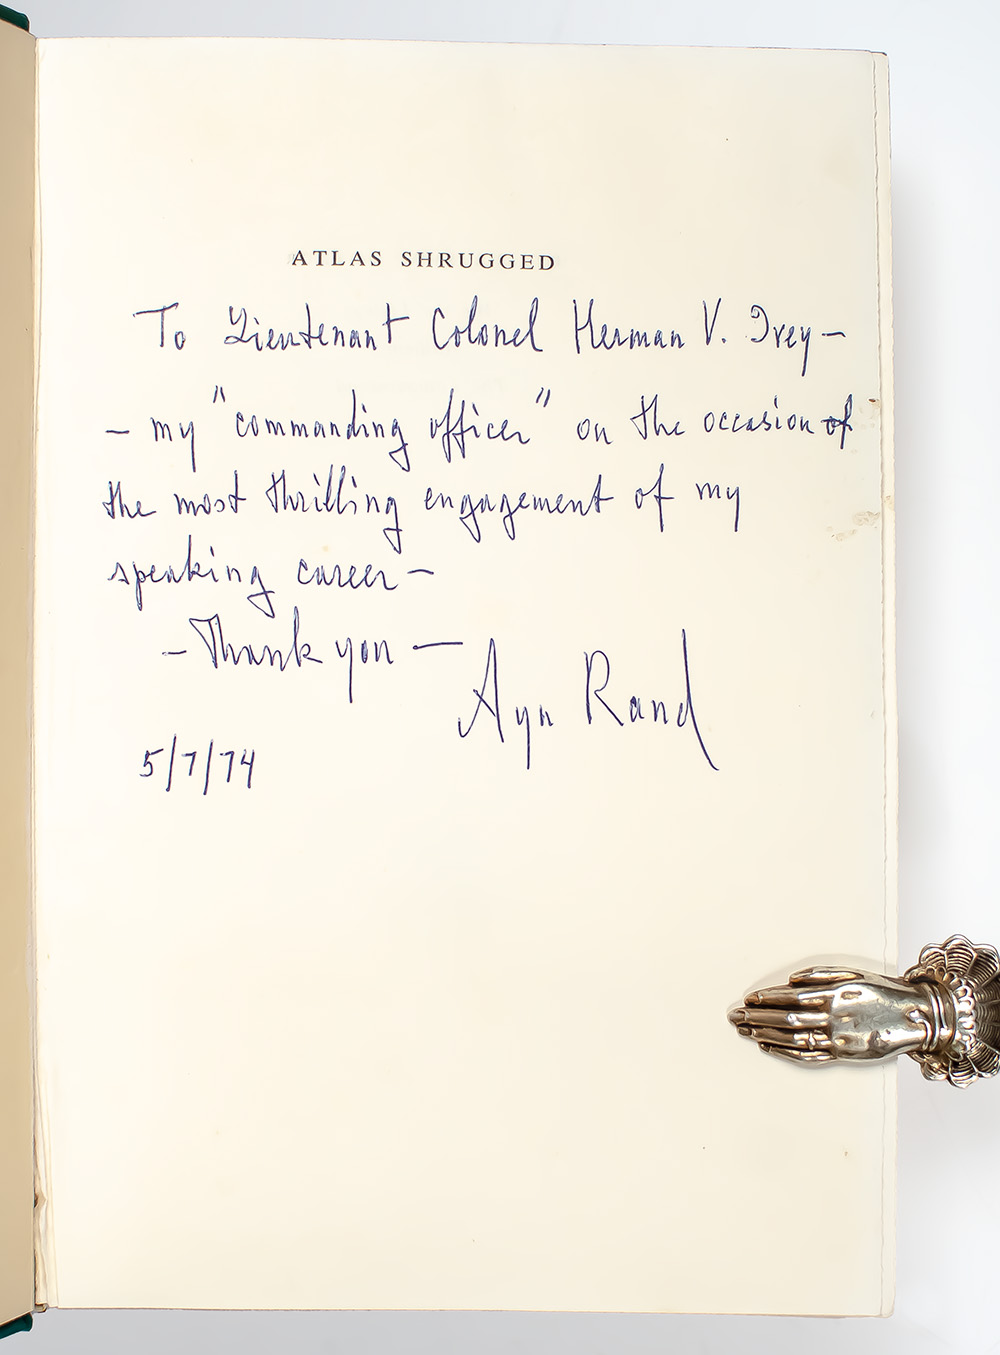 ATLAS SHRUGGED
To Lieutenant Colonel Herman V. Ivey —
— my "commanding officer" on the occasion of
the most thrilling engagement of my
speaking career —
— Thank you —
Ayn Rand
5/7/74